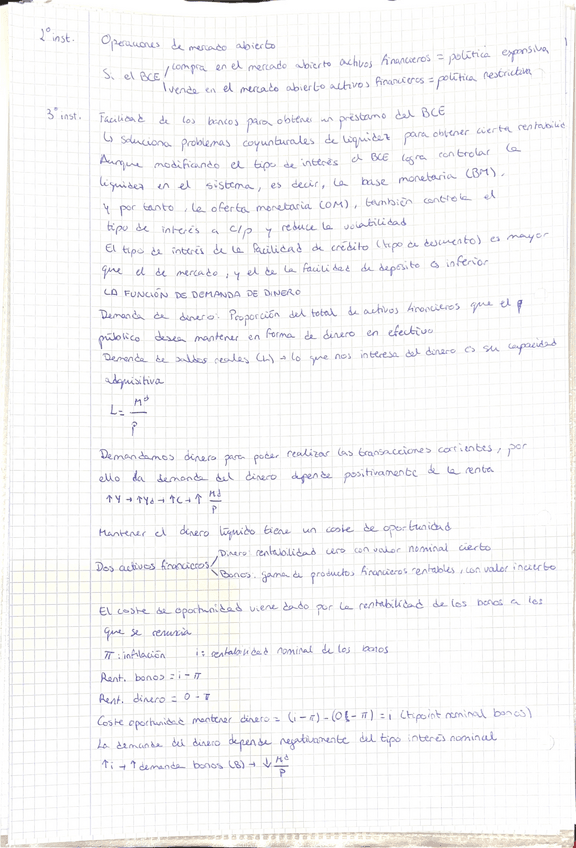 2º inst. Operaciones de mercado abierto
Si el BCE / compra en el mercado abierto activos financieros = política expansiva
\ vende en el mercado abierto activos financieros = política restrictiva
3º inst. Facilidad de los bancos para obtener un préstamo del BCE
↳ soluciona problemas coyunturales de liquidez para obtener cierta rentabilid
Aunque modificando el tipo de interés el BCE logra controlar la
liquidez en el sistema, es decir, la base monetaria (BM),
y por tanto, la oferta monetaria (OM), también controla el
tipo de interés a c/p y reduce la volatilidad
El tipo de interés de la facilidad de crédito (tipo de descuento) es mayor
que el de mercado, y el de la facilidad de depósito es inferior
LA FUNCIÓN DE DEMANDA DE DINERO
Demanda de dinero: Proporción del total de activos financieros que el p
público desea mantener en forma de dinero en efectivo
Demanda de saldos reales (L) → lo que nos interesa del dinero es su capacidad
adquisitiva
L = M^d / P
Demandamos dinero para poder realizar las transacciones corrientes, por
ello la demanda del dinero depende positivamente de la renta
↑Y → ↑Yd → ↑C → ↑ Md / P
Mantener el dinero líquido tiene un coste de oportunidad
Dos activos financieros / Dinero: rentabilidad cero con valor nominal cierto
\ Bonos: gama de productos financieros rentables, con valor incierto
El coste de oportunidad viene dado por la rentabilidad de los bonos a los
que se renuncia
π: inflación i: rentabilidad nominal de los bonos
Rent. bonos = i - π
Rent. dinero = 0 - π
Coste oportunidad mantener dinero = (i - π) - (0 - π) = i (tipo int nominal bonos)
La demanda del dinero depende negativamente del tipo interés nominal
↑i → ↑ demanda bonos (B) → ↓ Md / P